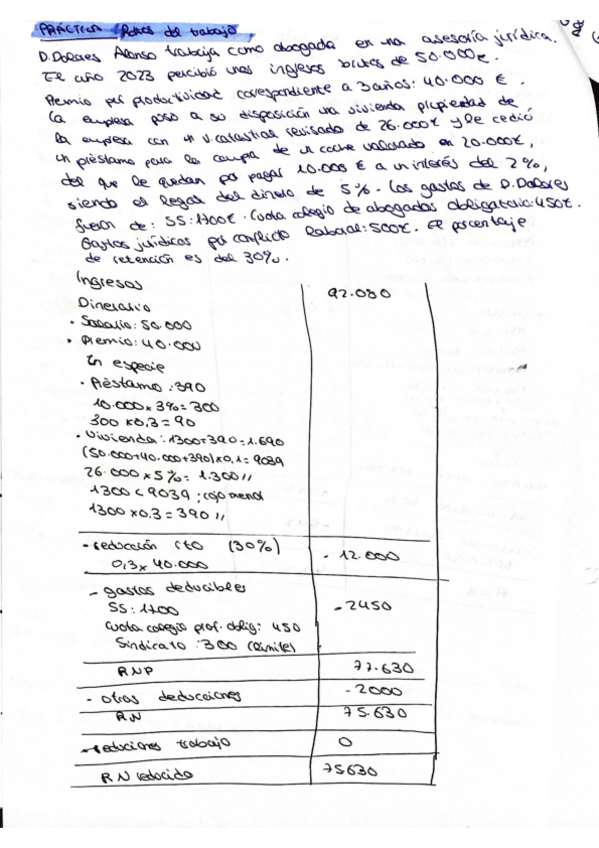 PRÁCTICA Rdtos del trabajo
D. Dolores Alonso trabaja como abogada en una asesoría jurídica.
El año 2023 percibió unos ingresos brutos de 50.000€.
Premio por productividad correspondiente a 3 años: 40.000 €.
La empresa puso a su disposición una vivienda propiedad de
la empresa con un v.catastral revisado de 26.000€ y le cedió
un préstamo para la compra de un coche valorado en 20.000€,
del que le quedan por pagar 10.000 € a un interés del 2%,
siendo el legal del dinero de 5%. Los gastos de D. Dolores
fueron de: SS: 1700€. Cuota colegio de abogados obligatoria: 450€.
Gastos jurídicos por conflicto laboral: 500€. El porcentaje
de retención es del 30%.
Ingresos 92.080
Dinerario
• Salario: 50.000
• Premio: 40.000
En especie
• Préstamo: 390
10.000 x 3% = 300
300 x 0,3 = 90
• Vivienda: 1300+390 = 1.690
(50.000+40.000+390) x 0,1 = 9039
26.000 x 5% = 1.300 //
1300 < 9039 ; cojo menor
1300 x 0.3 = 390 //
- reducción rto (30%) - 12.000
0,3 x 40.000
- gastos deducibles - 2450
SS: 1700
Cuota colegio prof. oblig: 450
Sindicato: 300 (límite)
RNP 77.630
- otras deducciones - 2000
RN 75.630
- reduciones trabajo 0
RN reducido 75630